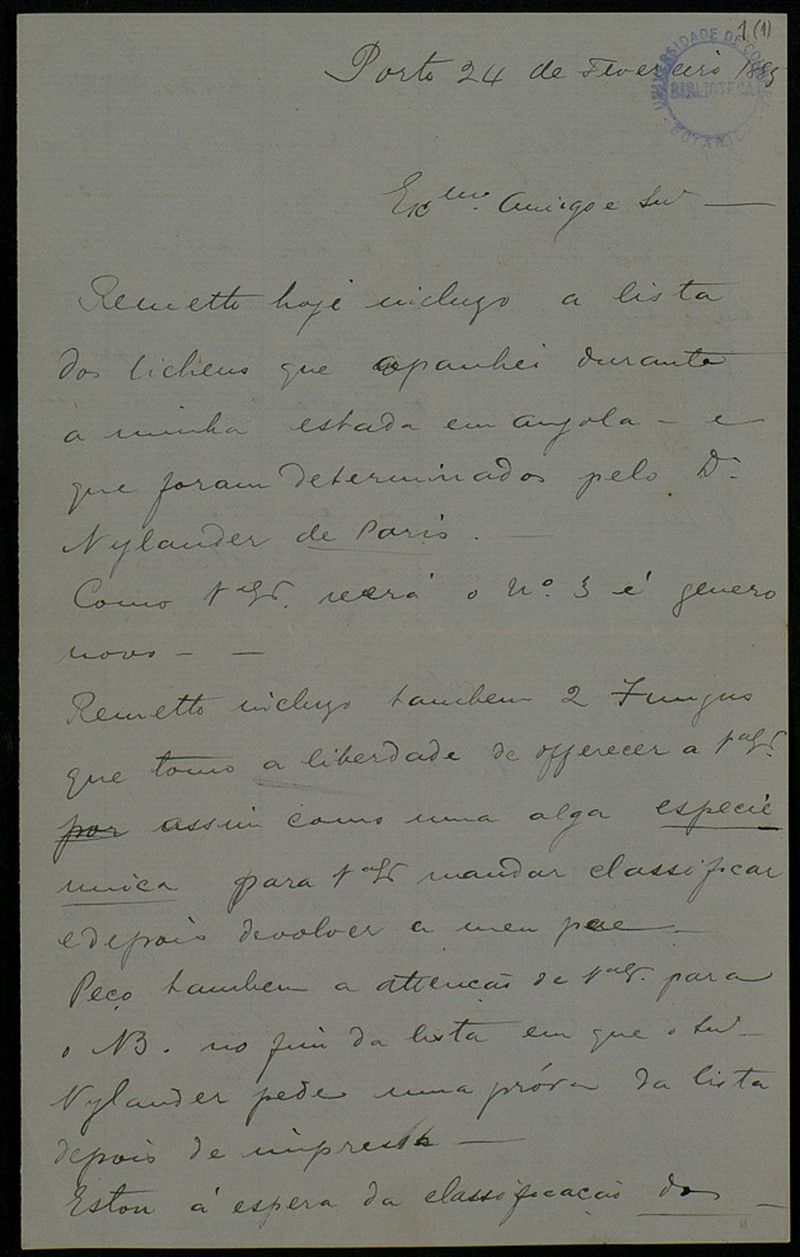 1 (1)
UNIVERSIDADE DE COIMBRA
BIBLIOTECA
BOTANICA
Porto 24 de Fevereiro 1885
Exmo. Amigo e Snr
Remetto hoje incluso a lista
dos lichens que apanhei durante
a minha estada em Angola - e
que foram determinados pelo Dr
Nylander de Paris. -
Como V.a Ex.a verá o Nº. 3 é genero
novo - -
Remetto incluso tambem 2 Fungus
que tomo a liberdade de offerecer a V.a Ex.a
por assim como uma alga especie
unica para V.a Ex.a mandar classificar
e depois devolver a meu pae -
Peço tambem a attenção de V.a Ex.a para
o NB. no fim da lista em que o Snr
Nylander pede uma próva da lista
depois de impressa -
Estou á espera da classificação do